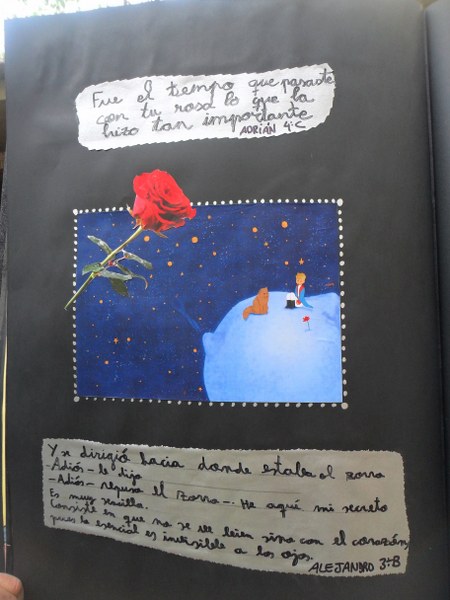 Fue el tiempo que pasaste
con tu rosa lo que la
hizo tan importante
ADRIÁN 4ºC
Y se dirigió hacia donde estaba el zorro
-Adiós- le dijo
-Adiós- repuso el zorro-. He aquí mi secreto
Es muy sencillo.
Consiste en que no se ve bien sino con el corazón,
pues lo esencial es invisible a los ojos.
ALEJANDRO 3ºB